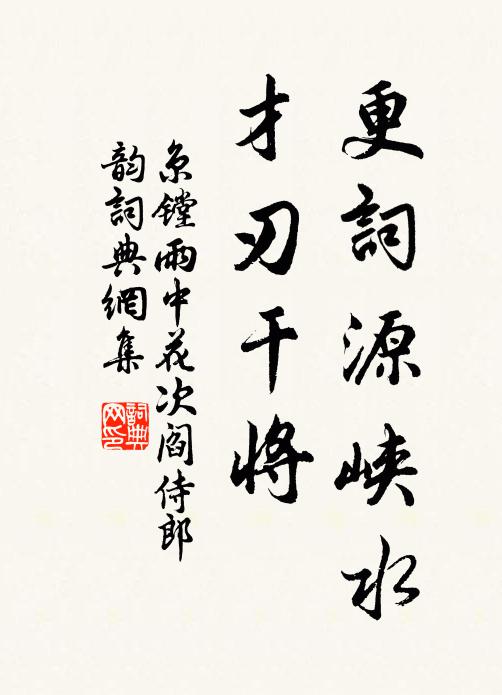 更詞源峽水
才刃干將
京鏜雨中花次閻侍郎
韵詞典網集
詞典
网印